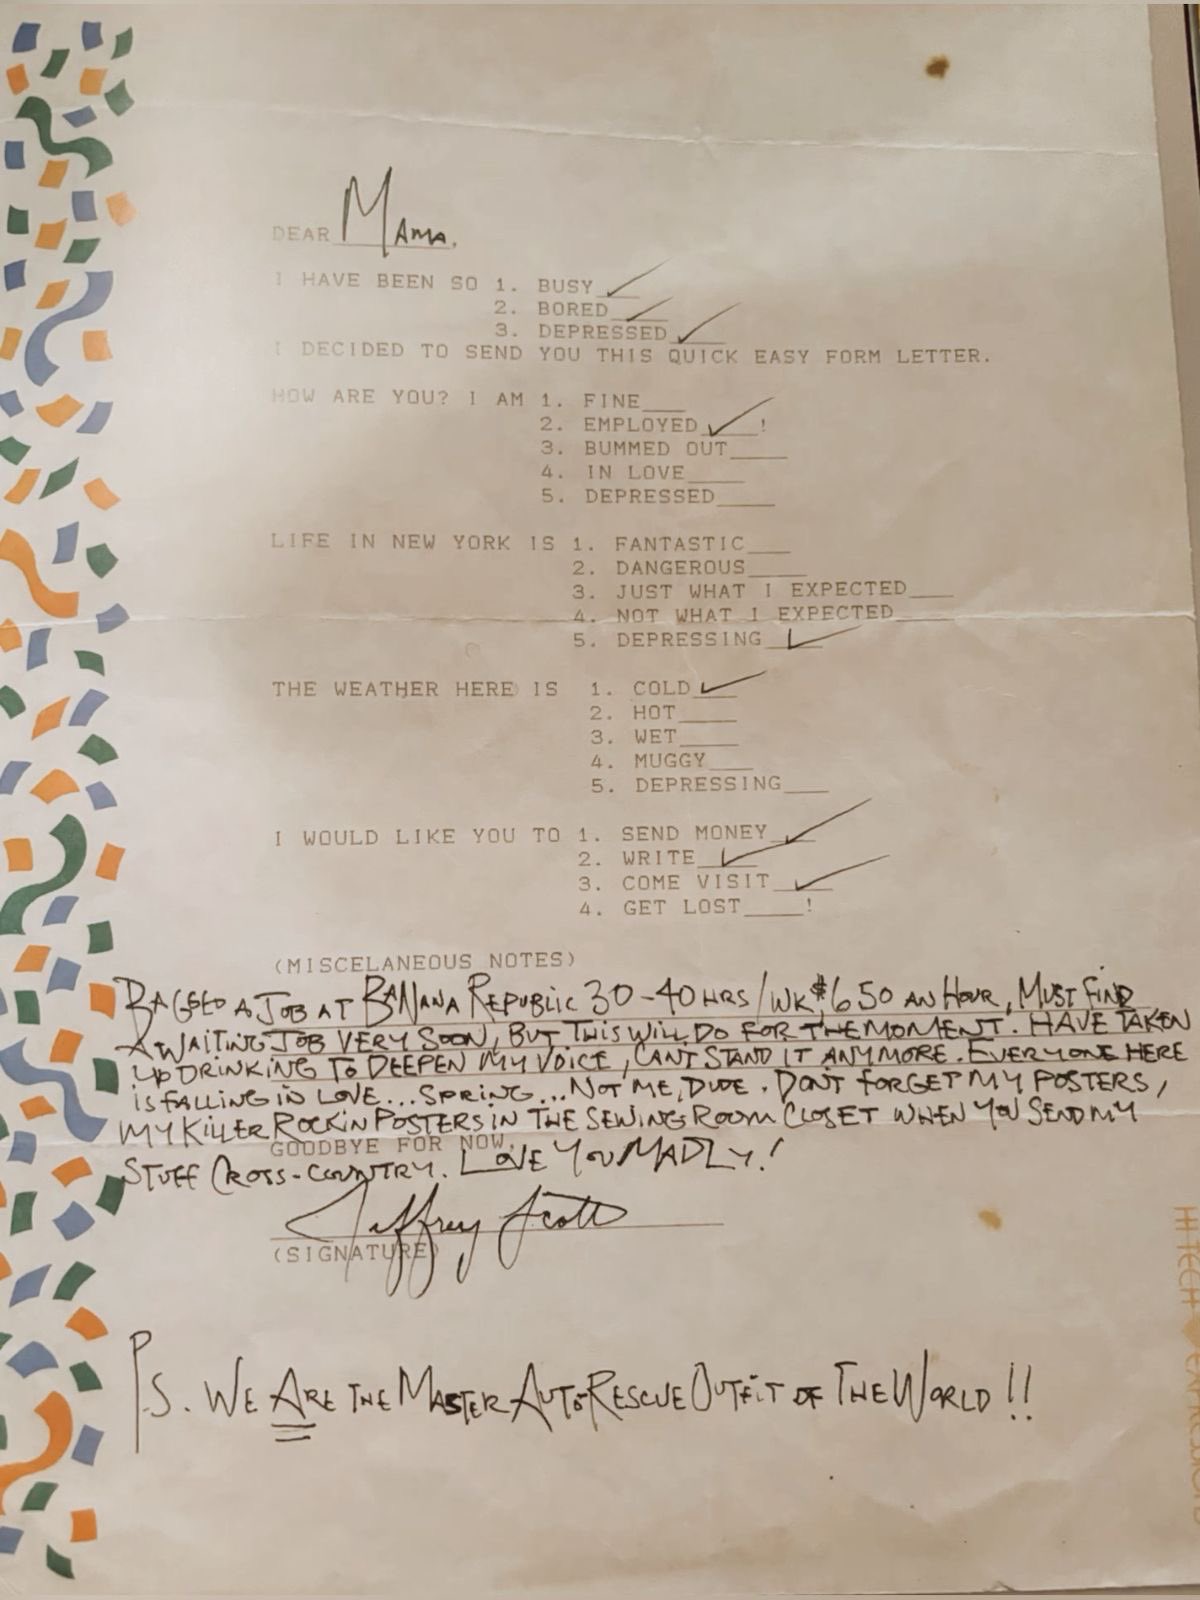 DEAR MAMA,
I HAVE BEEN SO 1. BUSY ✓
2. BORED ✓
3. DEPRESSED ✓
I DECIDED TO SEND YOU THIS QUICK EASY FORM LETTER.
HOW ARE YOU? I AM 1. FINE___
2. EMPLOYED ✓ !
3. BUMMED OUT____
4. IN LOVE____
5. DEPRESSED____
LIFE IN NEW YORK IS 1. FANTASTIC___
2. DANGEROUS____
3. JUST WHAT I EXPECTED___
4. NOT WHAT I EXPECTED____
5. DEPRESSING ✓
THE WEATHER HERE IS 1. COLD ✓
2. HOT____
3. WET____
4. MUGGY___
5. DEPRESSING___
I WOULD LIKE YOU TO 1. SEND MONEY ✓
2. WRITE ✓
3. COME VISIT ✓
4. GET LOST____!
(MISCELANEOUS NOTES)
BAGGED A JOB AT BANANA REPUBLIC 30-40 HRS/WK $6.50 AN HOUR, MUST FIND
A WAITING JOB VERY SOON, BUT THIS WILL DO FOR THE MOMENT. HAVE TAKEN
UP DRINKING TO DEEPEN MY VOICE, CANT STAND IT ANYMORE. EVERYONE HERE
IS FALLING IN LOVE... SPRING... NOT ME, DUDE. DON'T FORGET MY POSTERS,
MY KILLER ROCKIN POSTERS IN THE SEWING ROOM CLOSET WHEN YOU SEND MY
GOODBYE FOR NOW,
STUFF CROSS-COUNTRY. LOVE YOU MADLY!
Jeffrey Scott
(SIGNATURE)
P.S. WE ARE THE MASTER AUTO RESCUE OUTFIT OF THE WORLD!!
HI TECH EXPRESSIONS